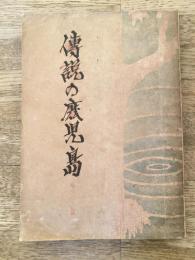 傳説の鹿児島